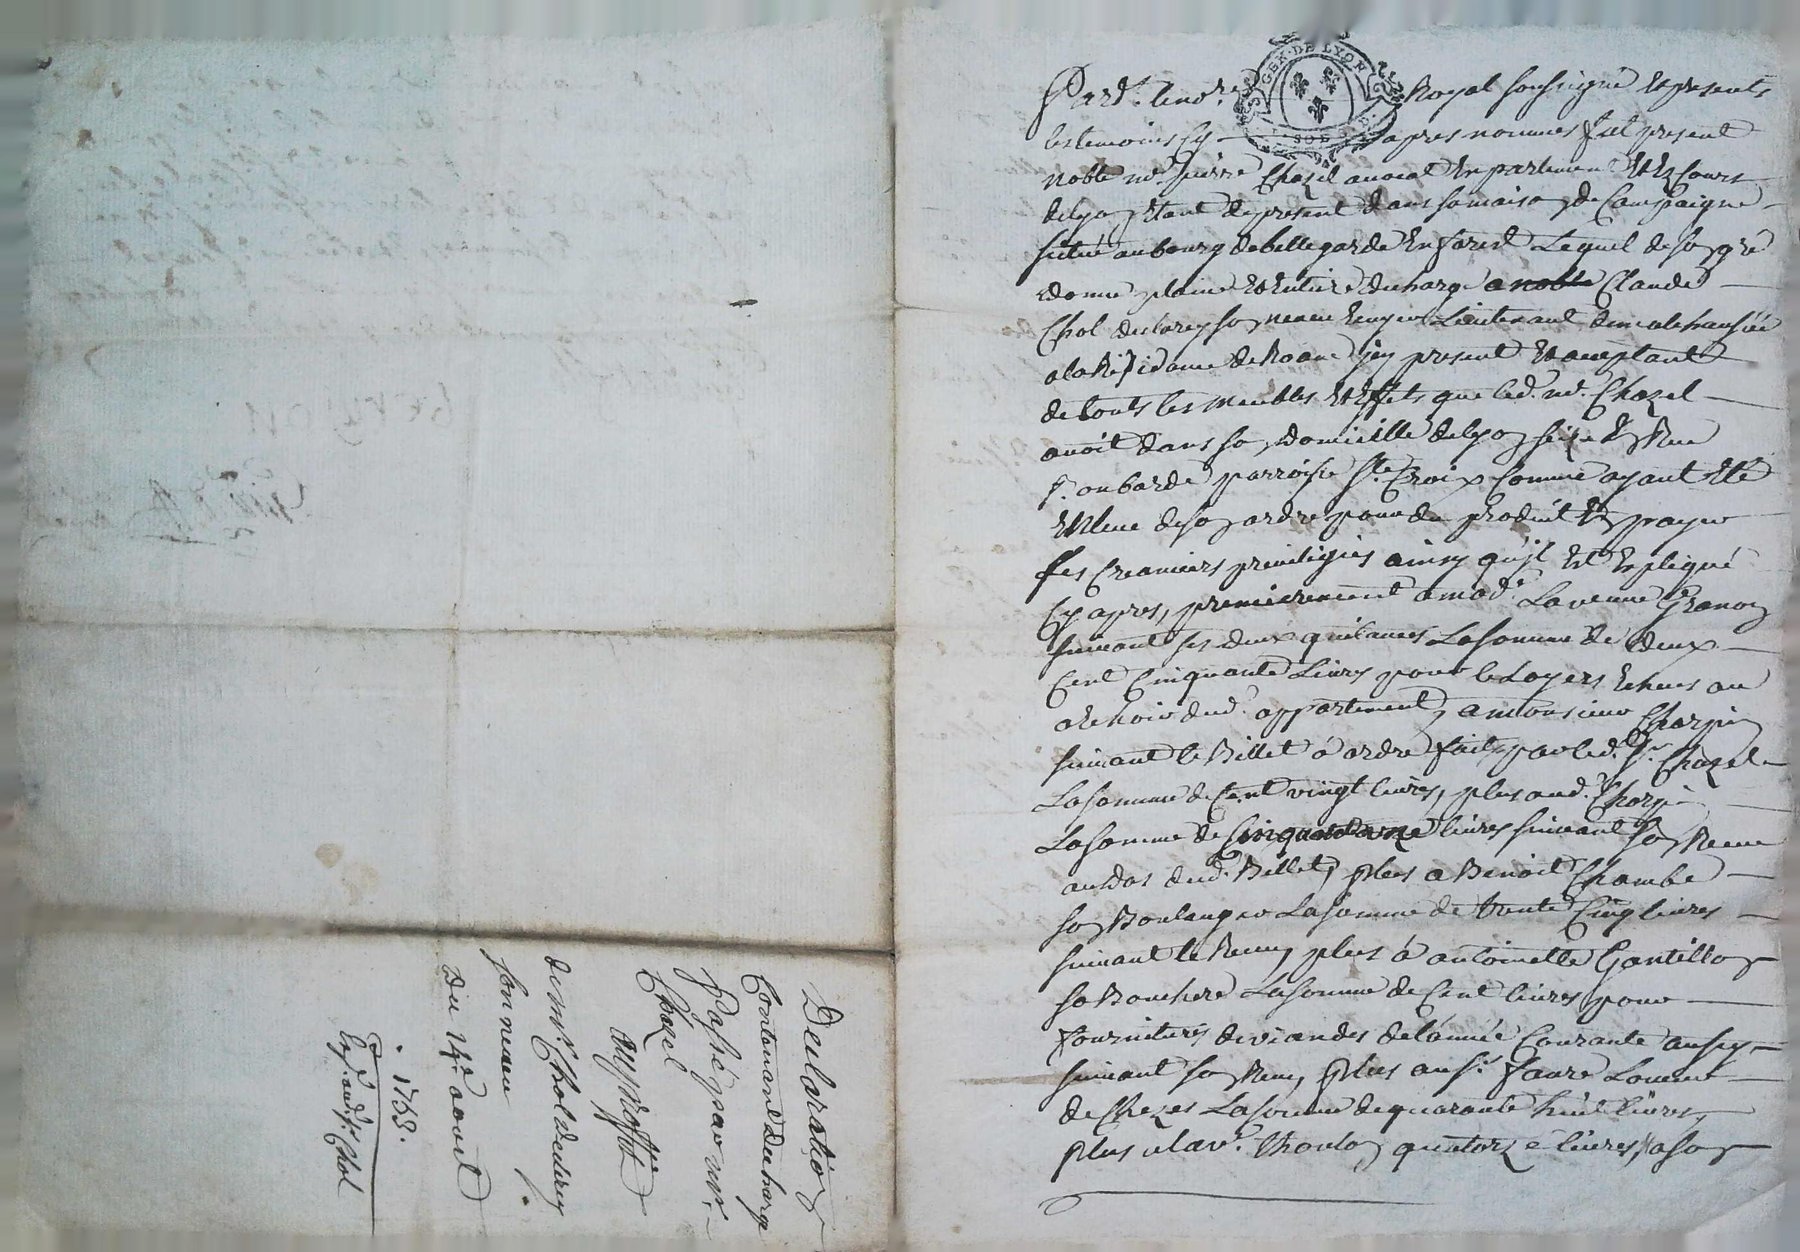 GEN. DE LYON
Pard.t le no.re Royal soussigné et presents
les temoins cy apres nommes fut present
noble m.e pierre Chazel avocat en parlement et es Cours
de lyon etant de present dans sa maison de Campaigne
situé au bourg de bellegarde en forest Lequel de son gré
donne plaine et entiere decharge a noble Claude
Chol declarey son neveu Lieutenant de marechaussée
a la Residance de Roane icy present et acceptant
de touts les meubles et effets que led. m.e Chazel
avoit dans son domicille de lyon en Rue
parroisse S.te Croix comme ayant eté
de son ordre pour du produit en payer
ses Creanciers privilegiés ainsy qu'il est expliqué
Cy apres, premierement a mad.e La veuve
suivant ses deux quitances La somme de deux
Cent Cinquante Livres pour le Loyers echues ou
a echoir dud. appartement, a monsieur Charpin
suivant le Billet à ordre fait par led. S.r Chazel
La somme de Cent vingt livres, plus aud. Charpin
La somme de livres suivant son Recu
au dos dud. Billet, plus a Benoit Chambe
son Boulanger La somme de trente Cinq livres
suivant le Recu, plus à antoinette Gantillon
sa Bouchere La somme de Cent livres pour
fournitures de viandes de l'année Courante aussy
suivant son Recu, Plus au S.r faure
La somme de quarante huit livres,
Plus a la v.e Thoulon quatorze livres, a son
Declaration
Contenant decharge
Passé par m.r
Chazel
au proffit
de m.r Chol declarey
son neveu
du 14.e aout
1758.
Exp. aud. S.r Chol